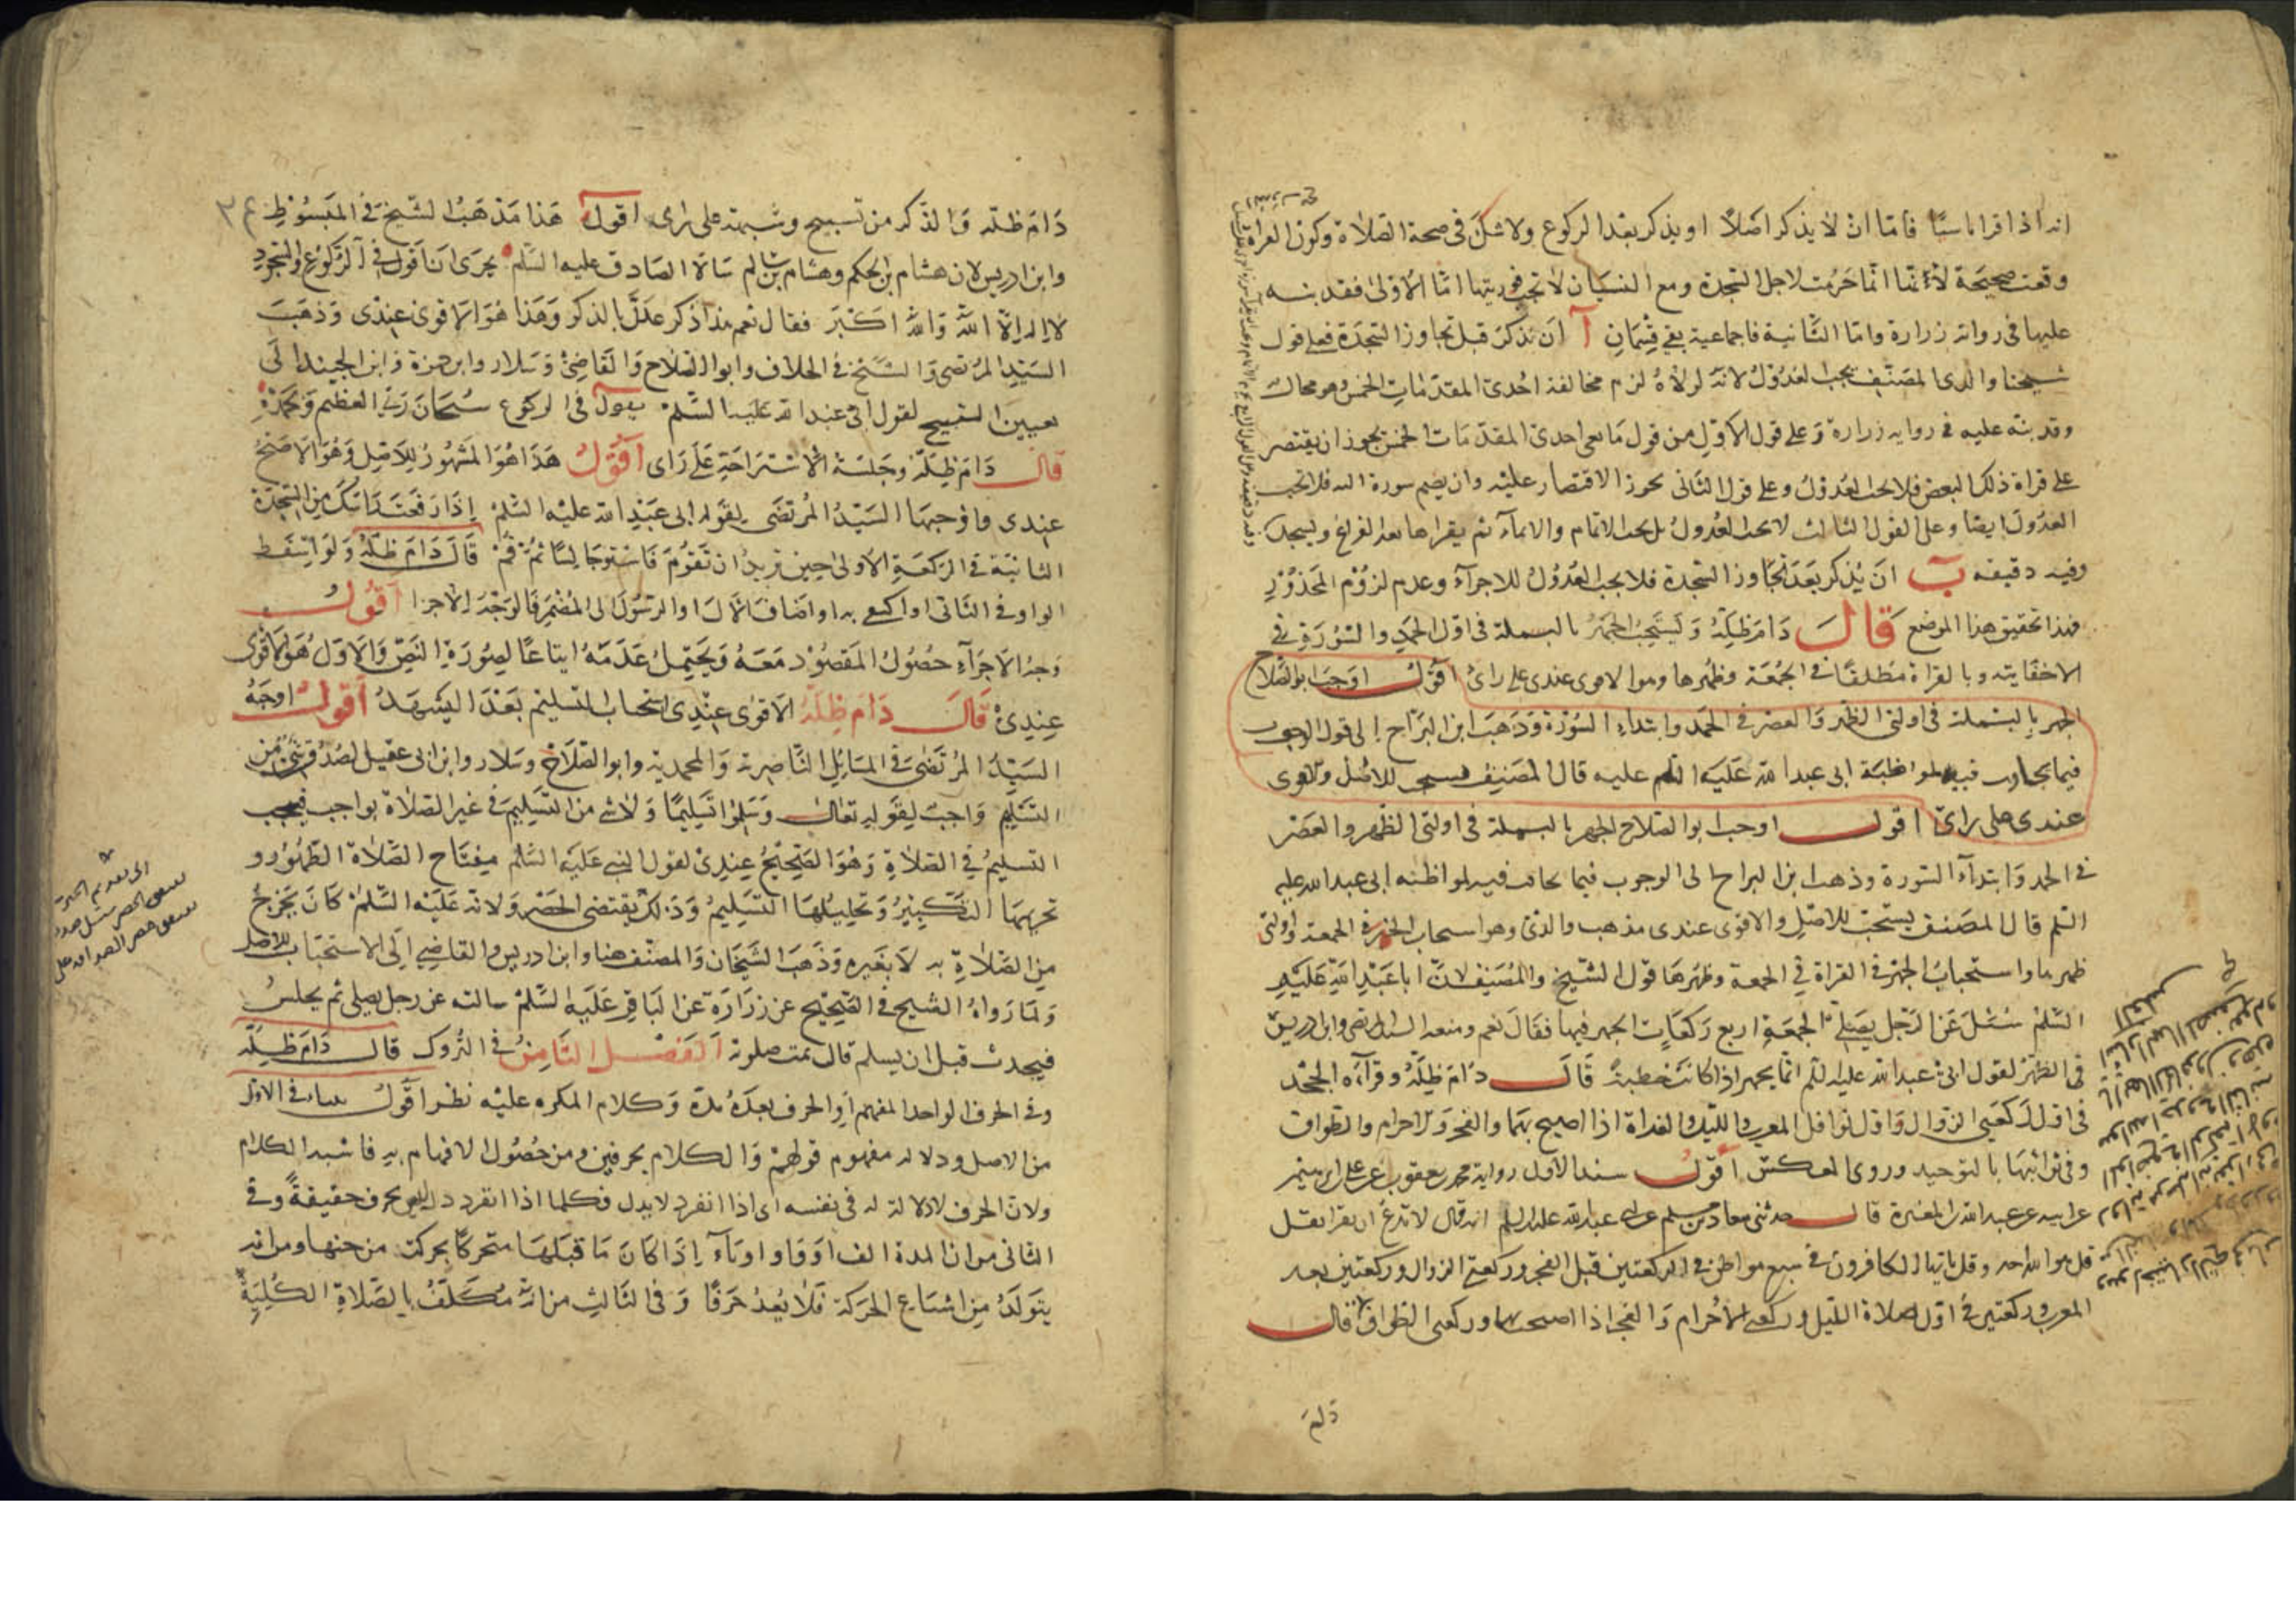 انه اذا قرا ناسيًا فامّا ان لا يذكر اصلًا او يذكر بعد الركوع ولا شكّ فى صحة الصلاة وكون القراة
وقعت صحيحة لانها انّما حرمت لاجل السّجدة ومع النسيان لا تجب فوريتها امّا الاولى فقد نبه
عليها فى رواية زرارة وامّا الثانية فاجماعية بقي قِسْمانِ آ ان يذكر قبل تجاوز السّجدة فعلى قول
شيخنا والدى المصنّف يجب العدول لانّه لولاه لزم مخالفة احدى المقدّمات الخمس وهو محال
وقد نبّه عليه فى رواية زرارة وعلى قول الاوّل من قول مانعى احدى المقدّمات الخمس يجوز ان يقتصر
على قراة ذلك البعض فلا يجب العدول وعلى قول الثانى يجوز الاقتصار عليه وان يضم سورة اليه فلا يجب
العدول ايضا وعلى القول الثالث لا يجب العدول بل يجب الاتمام والايماء ثم يقراها بعد الفراغ ويسجد
وفيه دقيقة ب ان يذكر بعد تجاوز السّجدة فلا يجب العدول للاجزآء وعدم لزوم المحذور
فهذا تحقيق هذا الموضع قال دام ظلّه ويستحبّ الجهر بالبسملة فى اوّل الحمد والسّورة فى
الاخفاتية وبالقراة مطلقًا فى الجُمُعَة وظُهرها وهو الاقوى عندى على راىٍ اقول اوجب ابو الصّلاح
الجهر بالبسملة فى اولتى الظهر والعصر فى الحمد وابتداء السّورة وذهب ابن البرّاج الى قول الوجوب
فيما يخافت فيه لمواظبة ابى عبد الله عليه السلم عليه قال المصنف يستحب للاصل والاقوى
عندى على راىٍ اقول اوجب ابو الصّلاح الجهر بالبسملة فى اولتى الظهر والعصر
فى الحمد وابتدآء السّورة وذهب ابن البراج الى الوجوب فيما يخافت فيه لمواظبة ابى عبد الله عليه
السّلم قال المصنف يستحبّ للاصل والاقوى عندى مذهب والدى وهو استحباب الجهر فى الجمعة واولتى
ظهرها واستحباب الجهر فى القراة فى الجمعة وظهرها قول الشّيخ والمصنف لانّ ابا عبد الله عليه
السّلم سُئل عن الرّجل يصلّى الجمعة اربع ركعات ايجهر فيها فقال نعم ومنعه السيد المرتضى وابن ادريس
فى الظهر لقول ابى عبد الله عليه السلم انّما يجهر اذا كانت خطبة قال دام ظلّه وقرآءة الجحد
فى اوّل ركعتى الزوال واوّل نوافل المغرب والليل والغداة اذا اصبح بهما والفجر والاحرام والطواف
وفى ثوانيها بالتوحيد وروى العكس اقول سند الاول رواية محمد بن يعقوب عن على بن ابرهيم
عن ابيه عن عبد الله بن المغيرة قال حدثنى معاذ بن مسلم عن ابى عبد الله عليه السلم انه قال لا تدع ان تقرا بقل
قل هو الله احد وقل يا ايها الكافرون فى سبع مواطن فى الركعتين قبل الفجر وركعتى الزوال وركعتين بعد
المغرب وركعتين فى اوّل صلاة الليل وركعتى الاحرام والفجر اذا اصبحت بها وركعتى الطواف قال
دام
دَام ظلّه والذّكر من تسبيح وشبهه على راى اقول هذا مذهب الشّيخ فى المبسوط
وابن ادريس لان هشام بن الحكم وهشام بن سالم سالا الصادق عليه السّلم يجزى ان اقول فى الركوع والسّجود
لا اله الّا الله والله اكبر فقال نعم هذا ذكر علل بالذكر وهذا هو الاقوى عندى وذهب
السيّد المرتضى والشّيخ فى الخلاف وابو الصّلاح والقاضى وسلار وابن حمزة وابن الجنيد الى
تعيين التسبيح لقول ابى عبد الله عليه السّلم يقول فى الركوع سبحان ربى العظيم وبحمده
قال دام ظلّه وجلسة الاستراحة على راى اقول هذا هو المشهور للاصل وهو الاصحّ
عندى واوجبها السيّد المرتضى لقوله ابى عبد الله عليه السّلم اذا رفعت راسك من السّجدة
الثانية فى الركعة الاولى حين تريد ان تقوم فاستو جالسًا ثمّ قم قال دام ظلّه ولو اسقط
الواو فى الثانى او اكتفى به او اضاف الآل او الرسول الى المضمر فالوجه الاجزا اقول
وجه الاجزآء حصول المقصود معه ويحتمل عدمه اتباعًا لصورة النصّ والاوّل هو الاقوى
عندى قال دام ظلّه الاقوى عندى استحباب التسليم بعد التشهد اقول اوجبه
السيّد المرتضى فى المسايل النّاصرية والمحمدية وابو الصّلاح وسلار وابن ابى عقيل لصدق شئ من
التسليم واجب لقوله تعالى وسلّموا تسليمًا ولا شى من التسليم فى غير الصلاة بواجب فيجب
التسليم فى الصلاة وهو الصّحيح عندى لقول النبى عليه السّلم مفتاح الصّلاة الطّهور و
تحريمها التكبير وتحليلها التسليم وذلك يقتضى الحصر ولانه عليه السّلم كان يخرج
من الصّلاة به لا بغيره وذهب الشّيخان والمصنّف هنا وابن ادريس والقاضى الى الاستحباب للاصل
ولما رواه الشيخ فى الصّحيح عن زرارة عن الباقر عليه السّلم سالته عن رجل يصلى ثم يجلس
فيحدث قبل ان يسلم قال تمت صلوته الفصل الثامن فى التّروك قال دام ظلّه
وفى الحرف الواحد المفهم او الحرف بعده مدة وكلام المكره عليه نظر اقول ينشا فى الاوّل
من الاصل ودلالة مفهوم قولهم والكلام بحرفين ومن حصول الافهام به فاشبه الكلام
ولانّ الحرف لا دلالة له فى نفسه اى اذا انفرد لا يدل فكلما اذا انفرد دل ليس بحرف حقيقةً وفى
الثانى من ان المدة الف او واو او يآء اذا كان ما قبلها متحركًا بحركة من جنسها ومن انه
يتولّد من اشباع الحركة فلا يعدّ حرفًا وفى الثالث من انّه مكلّف بالصّلاة الكلية